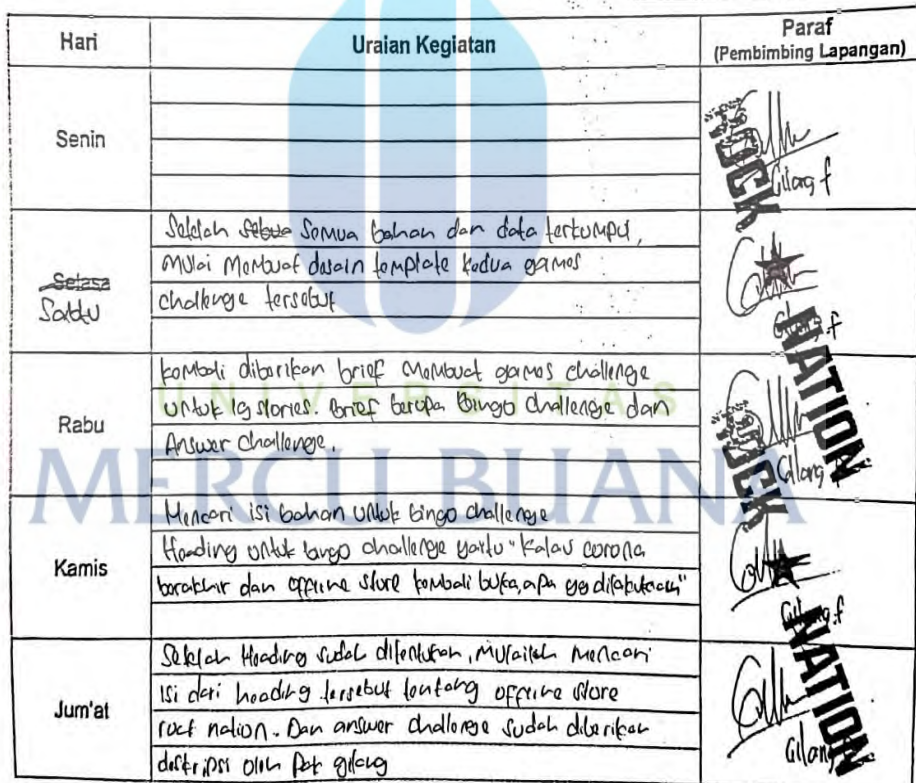 Hari Uraian Kegiatan Paraf
(Pembimbing Lapangan)
Senin
Gilang f
Setelah sebua Semua bahan dan data terkumpul,
Mulai Membuat desain template kedua games
Selasa
Sabtu
challenge tersebut
Gilang.f
kembali diberikan brief Membuat games challenge
Rabu
untuk Ig stories. Brief berupa Bingo Challenge dan
Answer Challenge.
Gilang
Mencari isi bahan untuk bingo challenge
Heading untuk bingo challenge yaitu "Kalau corona
Kamis
berakhir dan offline store kembali buka, apa yg dilakukan"
Gilang.f
Setelah Heading sudah ditentukan, Mulailah Mencari
Jum'at
isi dari heading tersebut tentang offline store
rock nation. Dan answer challenge sudah diberikan
deskripsi oleh Pak gilang
Gilang
ROCK NATION
ROCK NATION
UNIVERSITAS
MERCU BUANA